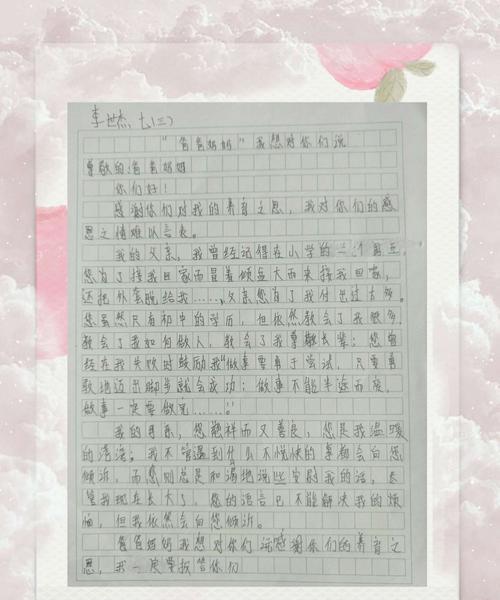 李世杰 七(三)
"爸爸妈妈"我想对你们说
尊敬的爸爸妈妈
你们好!
感谢你们对我的养育之恩,我对你们的感
恩之情难以言表。
我的父亲,我曾经记得在小学的一个周五,
您为了接我回家而冒着倾盆大雨来接我回家,
还把外套脱给我……,父亲您为了我付出过太多。
您虽然只有初中的学历,但依然教会了我很多,
教会了我如何做人,教会了我尊敬长辈;您曾
经在我失败时鼓励我"做事要勇于尝试,只要勇
敢地迈出脚步就会成功;做事不能半途而废,
做事一定要做完……!"
我的母亲,您慈祥而又善良,您是我温暖
的港湾;我不管遇到什么不愉快的事都会向您
倾诉,而您则总是和蔼地说些安慰我的话,尽
管我现在长大了,您的语言已不能解决我的烦
恼,但我依然会向您倾诉。
爸爸妈妈我想对你们说感谢你们的养育之
恩,我一定要报答你们